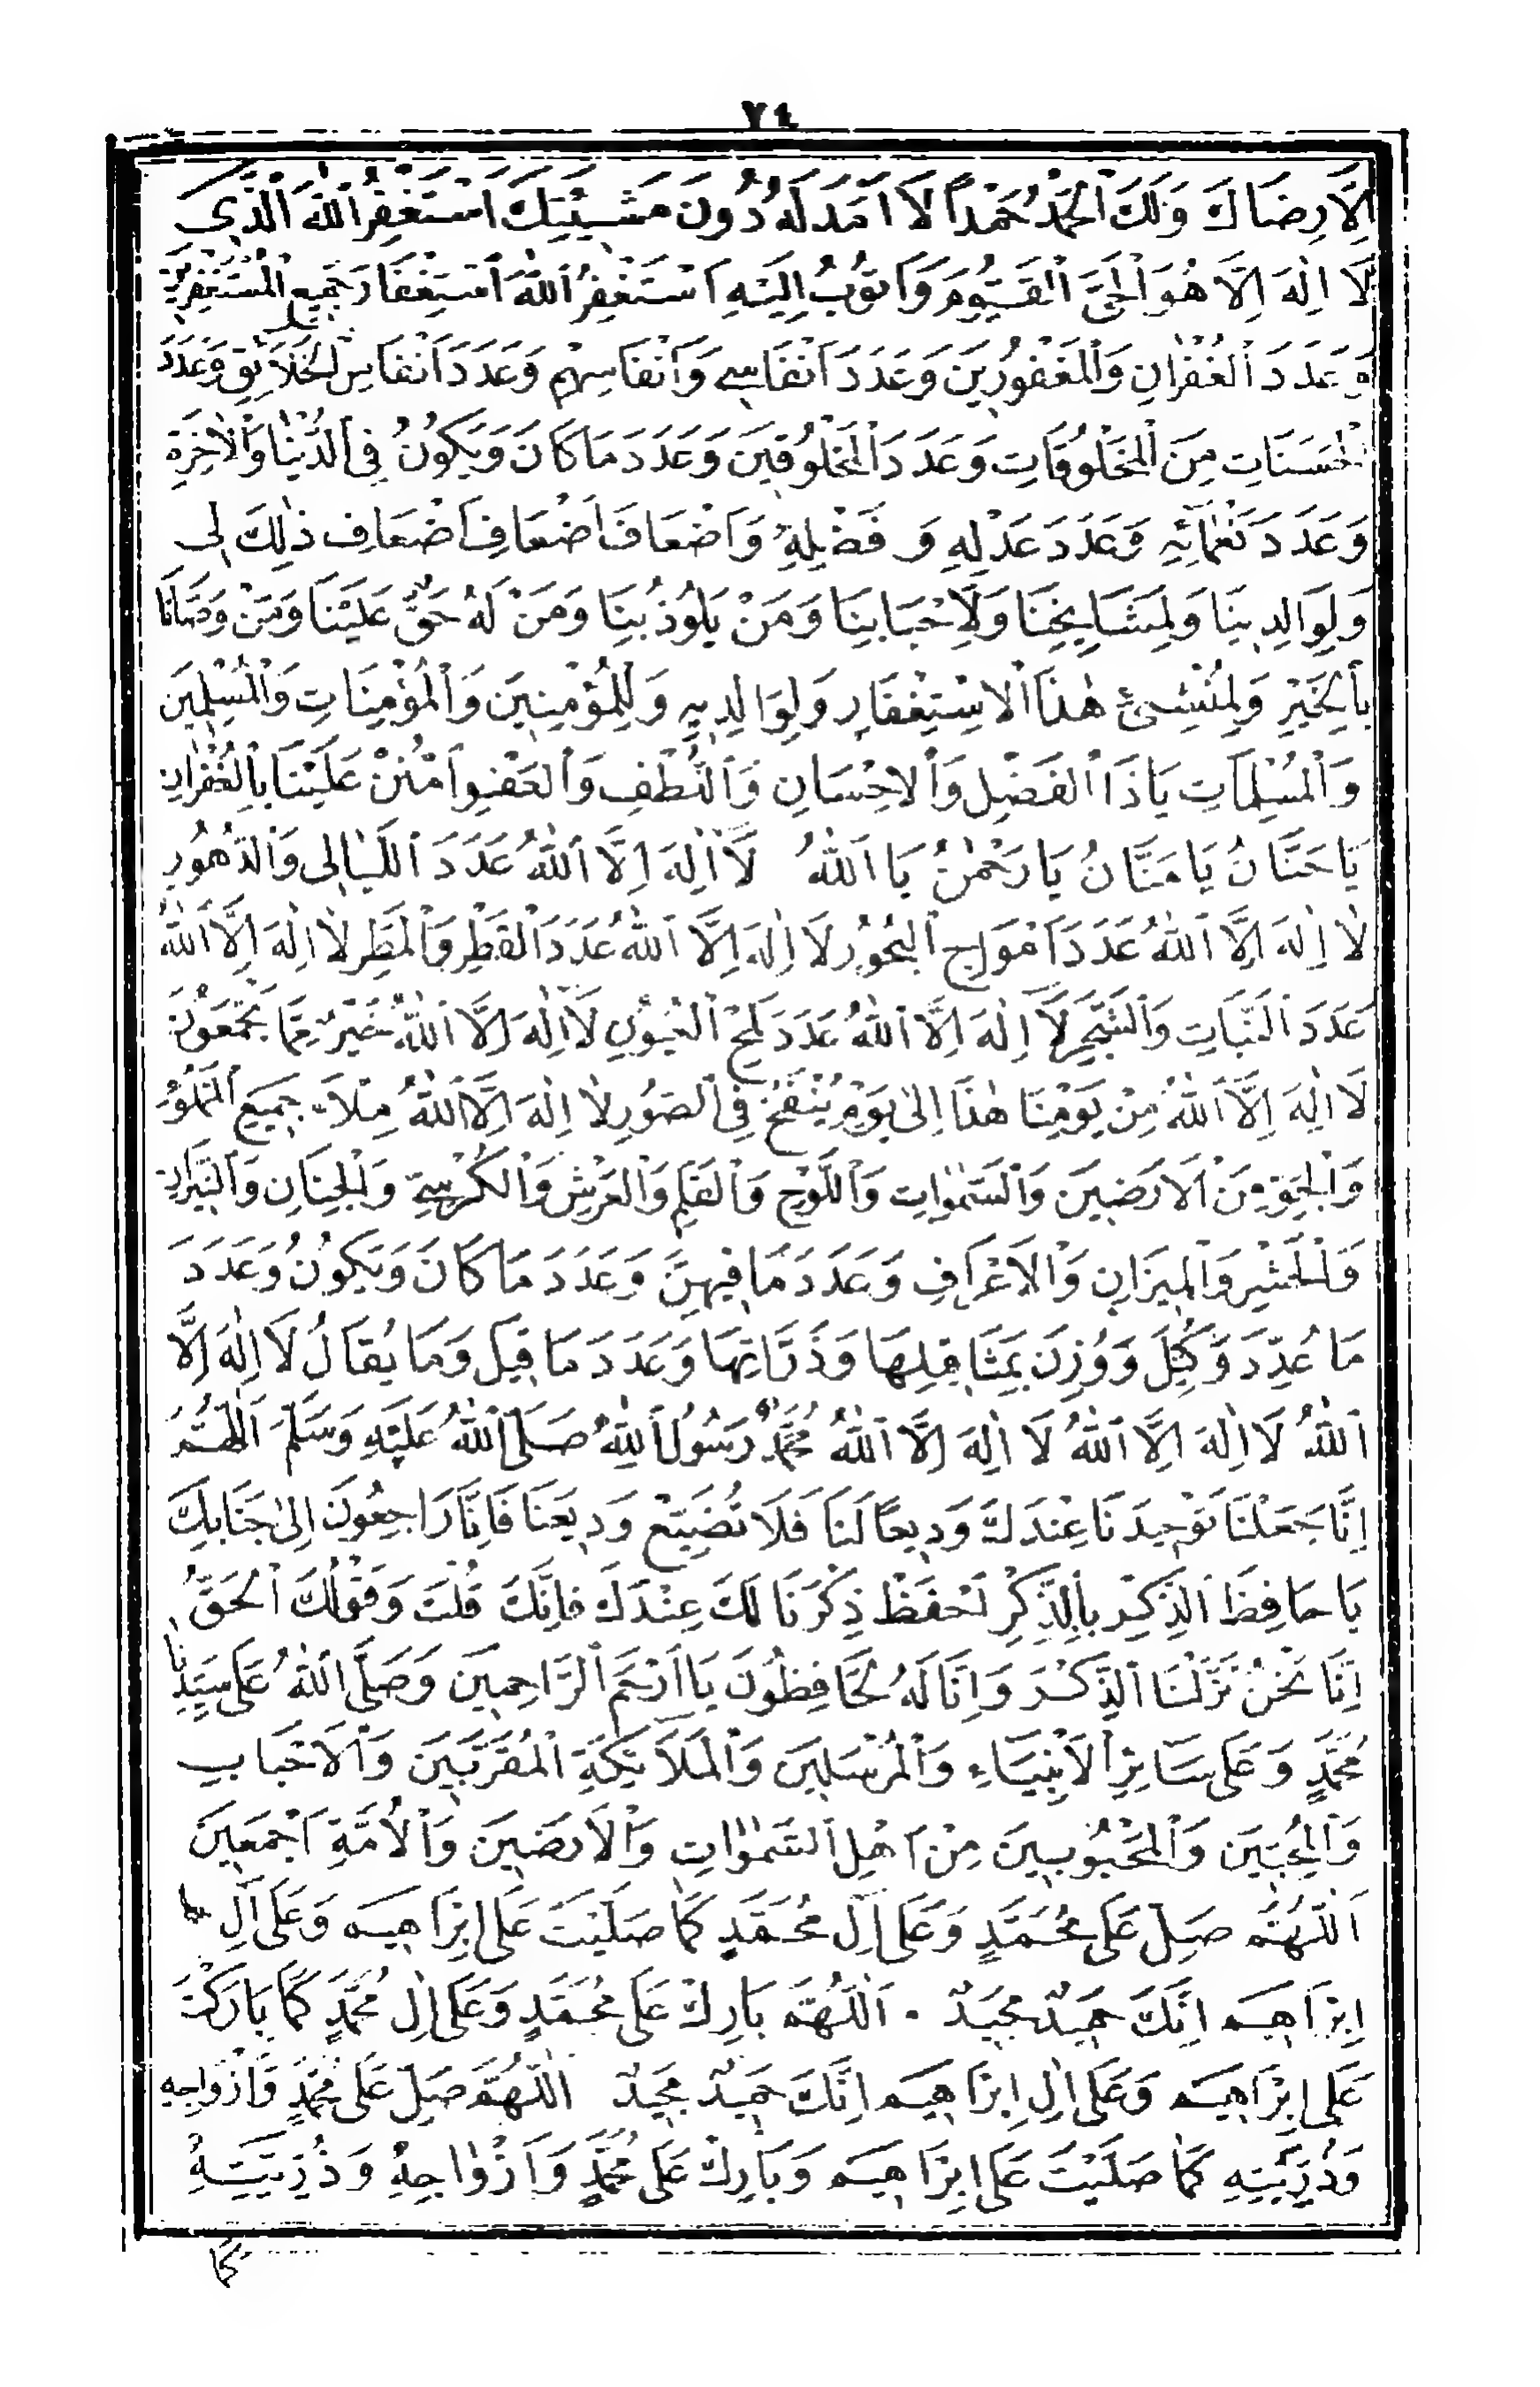 ٧٤
اِلَّا رِضَاكَ وَلَكَ الْحَمْدُ حَمْدًا لَا اَمَدَ لَهُ دُونَ مَشِيئَتِكَ اَسْتَغْفِرُ اللّٰهَ الَّذِى
لَا اِلٰهَ اِلَّا هُوَ الْحَىَّ الْقَيُّومَ وَاَتُوبُ اِلَيْهِ اَسْتَغْفِرُ اللّٰهَ اسْتِغْفَارَ جَمِيعِ الْمُسْتَغْفِرِينَ
وَعَدَدَ الْغُفْرَانِ وَالْمَغْفُورِينَ وَعَدَدَ اَنْفَاسِى وَاَنْفَاسِهِمْ وَعَدَدَ اَنْفَاسِ الْخَلَائِقِ وَعَدَدَ
الْحَسَنَاتِ مِنَ الْمَخْلُوقَاتِ وَعَدَدَ الْمَخْلُوقِينَ وَعَدَدَ مَا كَانَ وَيَكُونُ فِى الدُّنْيَا وَالْاٰخِرَةِ
وَعَدَدَ نَعْمَائِهِ وَعَدَدَ عَدْلِهِ وَفَضْلِهِ وَاَضْعَافَ اَضْعَافِ اَضْعَافِ ذٰلِكَ لِى
وَلِوَالِدِينَا وَلِمَشَايِخِنَا وَلِاَحْبَابِنَا وَمَنْ يَلُوذُ بِنَا وَمَنْ لَهُ حَقٌّ عَلَيْنَا وَمَنْ وَصَّانَا
بِالْخَيْرِ وَلِمُنْشِئِ هٰذَا الْاِسْتِغْفَارِ وَلِوَالِدِيهِ وَلِلْمُؤْمِنِينَ وَالْمُؤْمِنَاتِ وَالْمُسْلِمِينَ
وَالْمُسْلِمَاتِ يَا ذَا الْفَضْلِ وَالْاِحْسَانِ وَاللُّطْفِ وَالْعَفْوِ اُمْنُنْ عَلَيْنَا بِالْغُفْرَانِ
يَا حَنَّانُ يَا مَنَّانُ يَا رَحْمٰنُ يَا اَللّٰهُ لَا اِلٰهَ اِلَّا اللّٰهُ عَدَدَ اللَّيَالِى وَالدُّهُورِ
لَا اِلٰهَ اِلَّا اللّٰهُ عَدَدَ اَمْوَاجِ الْبُحُورِ لَا اِلٰهَ اِلَّا اللّٰهُ عَدَدَ الْقَطْرِ وَالْمَطَرِ لَا اِلٰهَ اِلَّا اللّٰهُ
عَدَدَ النَّبَاتِ وَالشَّجَرِ لَا اِلٰهَ اِلَّا اللّٰهُ عَدَدَ لَمْحِ الْعُيُونِ لَا اِلٰهَ اِلَّا اللّٰهُ خَيْرٌ مِمَّا يَجْمَعُونَ
لَا اِلٰهَ اِلَّا اللّٰهُ مِنْ يَوْمِنَا هٰذَا اِلٰى يَوْمِ يُنْفَخُ فِى الصُّورِ لَا اِلٰهَ اِلَّا اللّٰهُ مِلَأَ جَمِيعِ
وَالْجَوِّ مِنَ الْاَرَضِينَ وَالسَّمٰوَاتِ وَاللَّوْحِ وَالْقَلَمِ وَالْعَرْشِ وَالْكُرْسِىِّ وَالْجِنَانِ وَالنِّيرَانِ
وَالْحَشْرِ وَالْمِيزَانِ وَالْاَعْرَافِ وَعَدَدَ مَا فِيهِنَّ وَعَدَدَ مَا كَانَ وَيَكُونُ وَعَدَدَ
مَا عُدِّدَ وَكُيِّلَ وَوُزِنَ بِمَثَاقِلِهَا وَذَرَّاتِهَا وَعَدَدَ مَا قِيلَ وَمَا يُقَالُ لَا اِلٰهَ اِلَّا
اللّٰهُ لَا اِلٰهَ اِلَّا اللّٰهُ لَا اِلٰهَ اِلَّا اللّٰهُ مُحَمَّدٌ رَسُولُ اللّٰهِ صَلَّى اللّٰهُ عَلَيْهِ وَسَلَّمَ اَللّٰهُمَّ
اِنَّا جَعَلْنَا تَوْحِيدَنَا عِنْدَكَ وَدِيعًا لَنَا فَلَا تُضَيِّعْ وَدِيعَنَا فَاِنَّا رَاجِعُونَ اِلٰى جَنَابِكَ
يَا حَافِظَ الذِّكْرِ بِالذِّكْرِ اَحْفَظْ ذِكْرَنَا لَكَ عِنْدَكَ فَاِنَّكَ قُلْتَ وَقَوْلُكَ الْحَقُّ
اِنَّا نَحْنُ نَزَّلْنَا الذِّكْرَ وَاِنَّا لَهُ لَحَافِظُونَ يَا اَرْحَمَ الرَّاحِمِينَ وَصَلَّى اللّٰهُ عَلٰى سَيِّدِنَا
مُحَمَّدٍ وَعَلٰى سَائِرِ الْاَنْبِيَاءِ وَالْمُرْسَلِينَ وَالْمَلَائِكَةِ الْمُقَرَّبِينَ وَالْاَحْبَابِ
وَالْمُحِبِّينَ وَالْمَحْبُوبِينَ مِنْ اَهْلِ السَّمٰوَاتِ وَالْاَرَضِينَ وَالْاُمَّةِ اَجْمَعِينَ
اَللّٰهُمَّ صَلِّ عَلٰى مُحَمَّدٍ وَعَلٰى اٰلِ مُحَمَّدٍ كَمَا صَلَّيْتَ عَلٰى اِبْرَاهِيمَ وَعَلٰى اٰلِ
اِبْرَاهِيمَ اِنَّكَ حَمِيدٌ مَجِيدٌ . اَللّٰهُمَّ بَارِكْ عَلٰى مُحَمَّدٍ وَعَلٰى اٰلِ مُحَمَّدٍ كَمَا بَارَكْتَ
عَلٰى اِبْرَاهِيمَ وَعَلٰى اٰلِ اِبْرَاهِيمَ اِنَّكَ حَمِيدٌ مَجِيدٌ اَللّٰهُمَّ صَلِّ عَلٰى مُحَمَّدٍ وَاَزْوَاجِهِ
وَذُرِّيَّتِهِ كَمَا صَلَّيْتَ عَلٰى اِبْرَاهِيمَ وَبَارِكْ عَلٰى مُحَمَّدٍ وَاَزْوَاجِهِ وَذُرِّيَّتِهِ
كَمَا